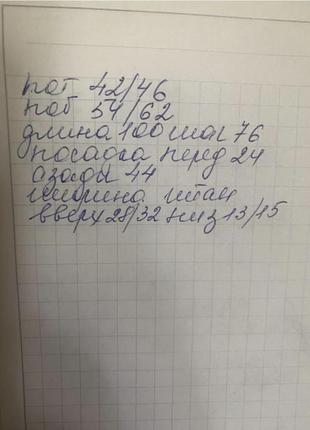 пот 42/46
поб 54/62
длина 100 шаг 76
посадка перед 24
а зады 44
ширина штан
вверх 28/32 низ 13/15